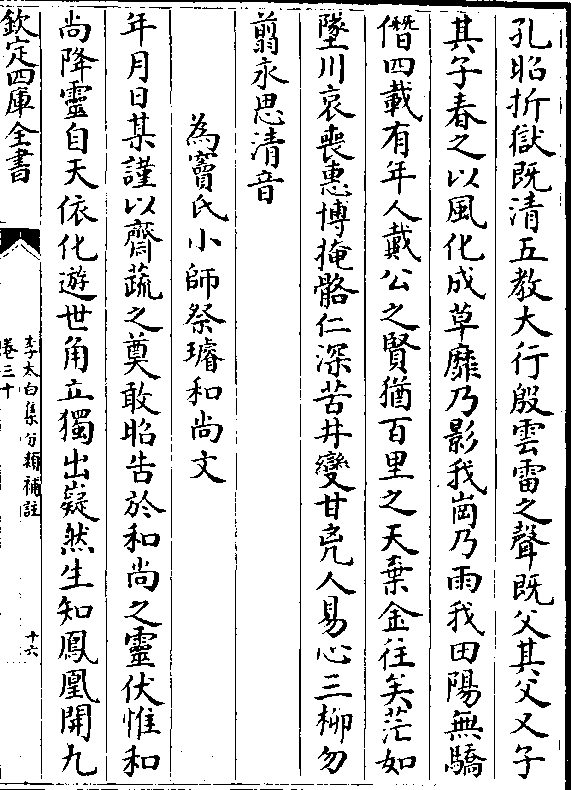 孔昭折獄既清五教大行殷雲雷之聲既父其父又子
其子春之以風化成草靡乃影我崗乃雨我田陽無驕
僭四載有年人戴公之賢猶百里之天棄余往矣茫如
墜川哀喪惠博掩骼仁深苦井變甘兇人易心三柳勿
翦永思清音
為竇氏小師祭璿和尚文
年月日某謹以齋蔬之奠敢昭告於和尚之靈伏惟和
尚降靈自天依化遊世角立獨出嶷然生知鳳凰開九
欽定四庫全書
李太白集分類補註
卷三十
十六